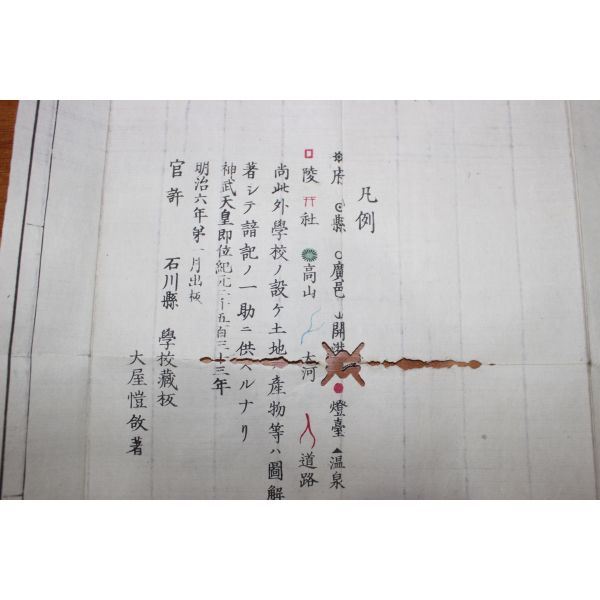 凡例
府 縣 廣邑 開港 燈臺 温泉
陵 社 高山 大河 道路
尚此外學校ノ設ケ土地 産物等ハ圖解
著シテ諳記ノ一助ニ供ヘルナリ
神武天皇即位紀元二千五百三十三年
明治六年第一月出板
官許 石川縣 學校藏板
大屋愷敆著